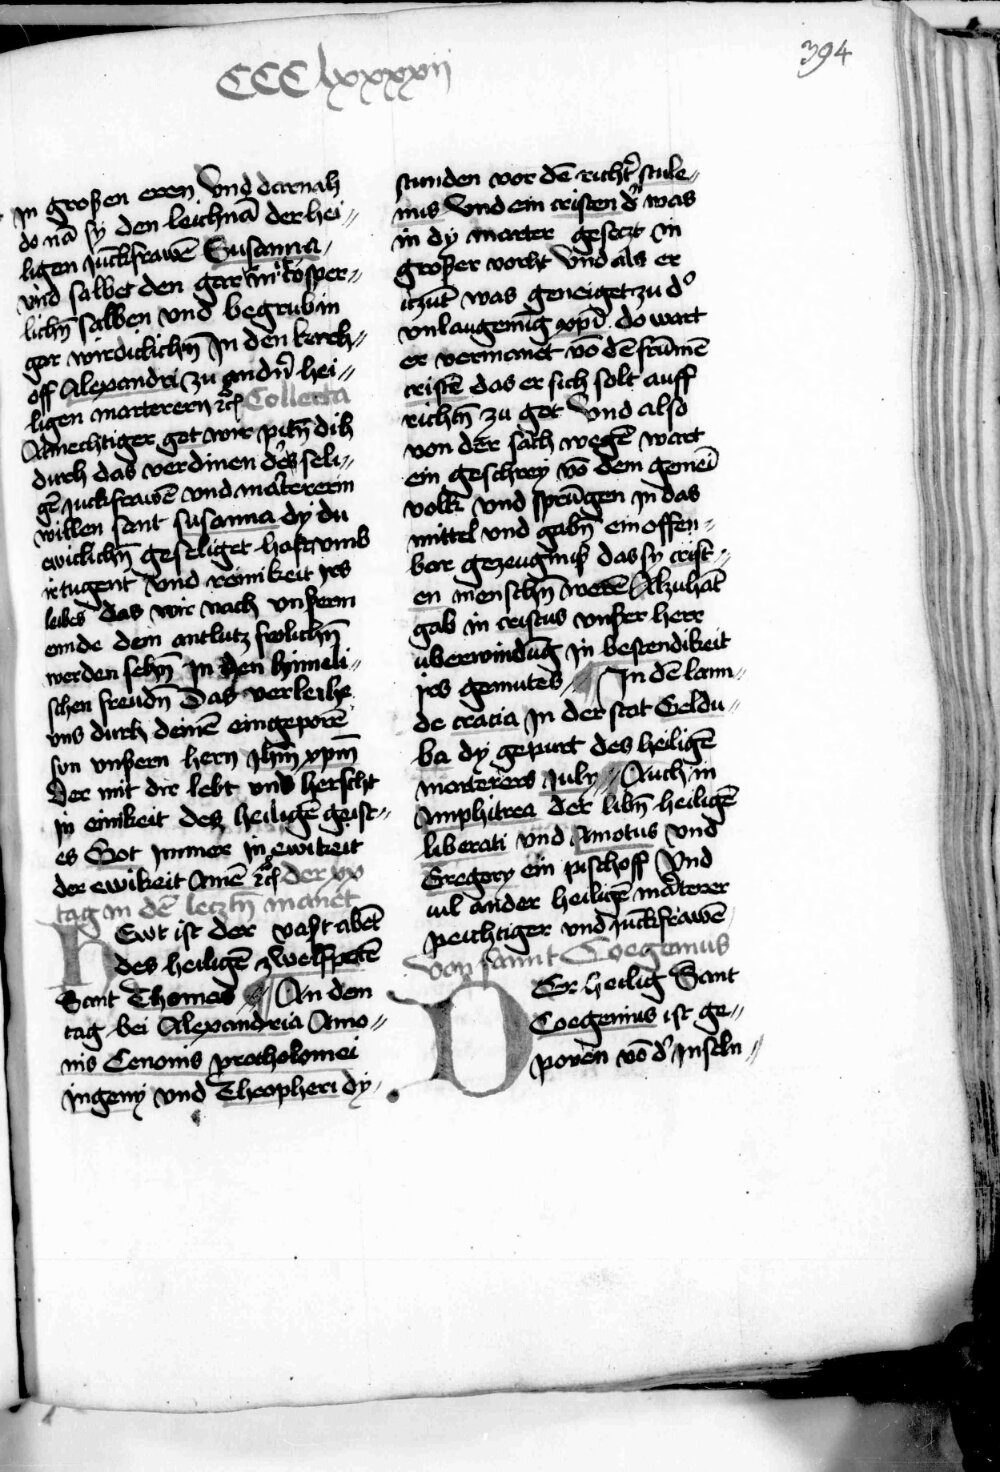 CCClxxxxii
394
in großen eren Und darnah
do nā sy den leichnā der hei⸗
ligen Juckfrawē Susanna
vnd salbet den gar mit cosper⸗
lichn̄ salben vnd begrub in
gar wirdiclichn̄ In den kirch⸗
off Alexandri zu andn̄ hei⸗
ligen marterern Collecta
Almechtiger got wir pitn̄ dih
durch das verdinen des seli⸗
gē juckfrawē vnd martererin
willen sant susanna dy du
ewiclichn̄ geseliget hast vmb
ir tugent vnd reinikeit irs
leibes das wir nach vnserm
ende dein antlutz frolichn̄
werden sehn̄ In den hymeli⸗
schen freudn̄ Das verleihe
vns durch deinē eingeporē
sun vnsern hern Jhm̄ xpm̄
Der mit dir lebt vnd herscht
in einikeit des heiligē geist⸗
es Got Immer in ewikeit
der ewikeit Amē der xx
tag in dē lecztn̄ manet
Hewt ist der vast abēt
des heiligē zwelfpotē
Sant Thomas An dem
tag bei Alexandria Amo⸗
nis Cenonis ptholomei
ingeny vnd Theopheri dy⸗
stunden vor dē richt stule⸗
nus Und ein cristen d was
in dy marter gesetzt in
großer vorht Und als er
iczūt was geneiget zu d
vnlaugenūg xpi do wart
er vermanet vō dē frumē
cristē das er sich solt auff
richtn̄ zu got Und also
von der sach wegē wart
ein geschrey vō dem gemeī
volk vnd sprūgen in das
mittel vnd gabn̄ ein offen⸗
bar gezeugniß das sy crist⸗
en menschn̄ werē Alzuhāt
gab in cristus vnser herr
uberwindūg in bestendikeit
irs gemutes In dē lann⸗
de cracia In der stat Geldu⸗
ba dy gepurt des heiligē
marterers July Auch in
Amphitrea der libn̄ heiligē
liberati vnd Amotus vnd
Gregory ein pischoff Vnd
vil ander heiligē marterer
peichtiger vnd juckfrawē
von sannt Coegenius
Der heilig Sant
Coegenius ist ge⸗
poren vō d Inseln